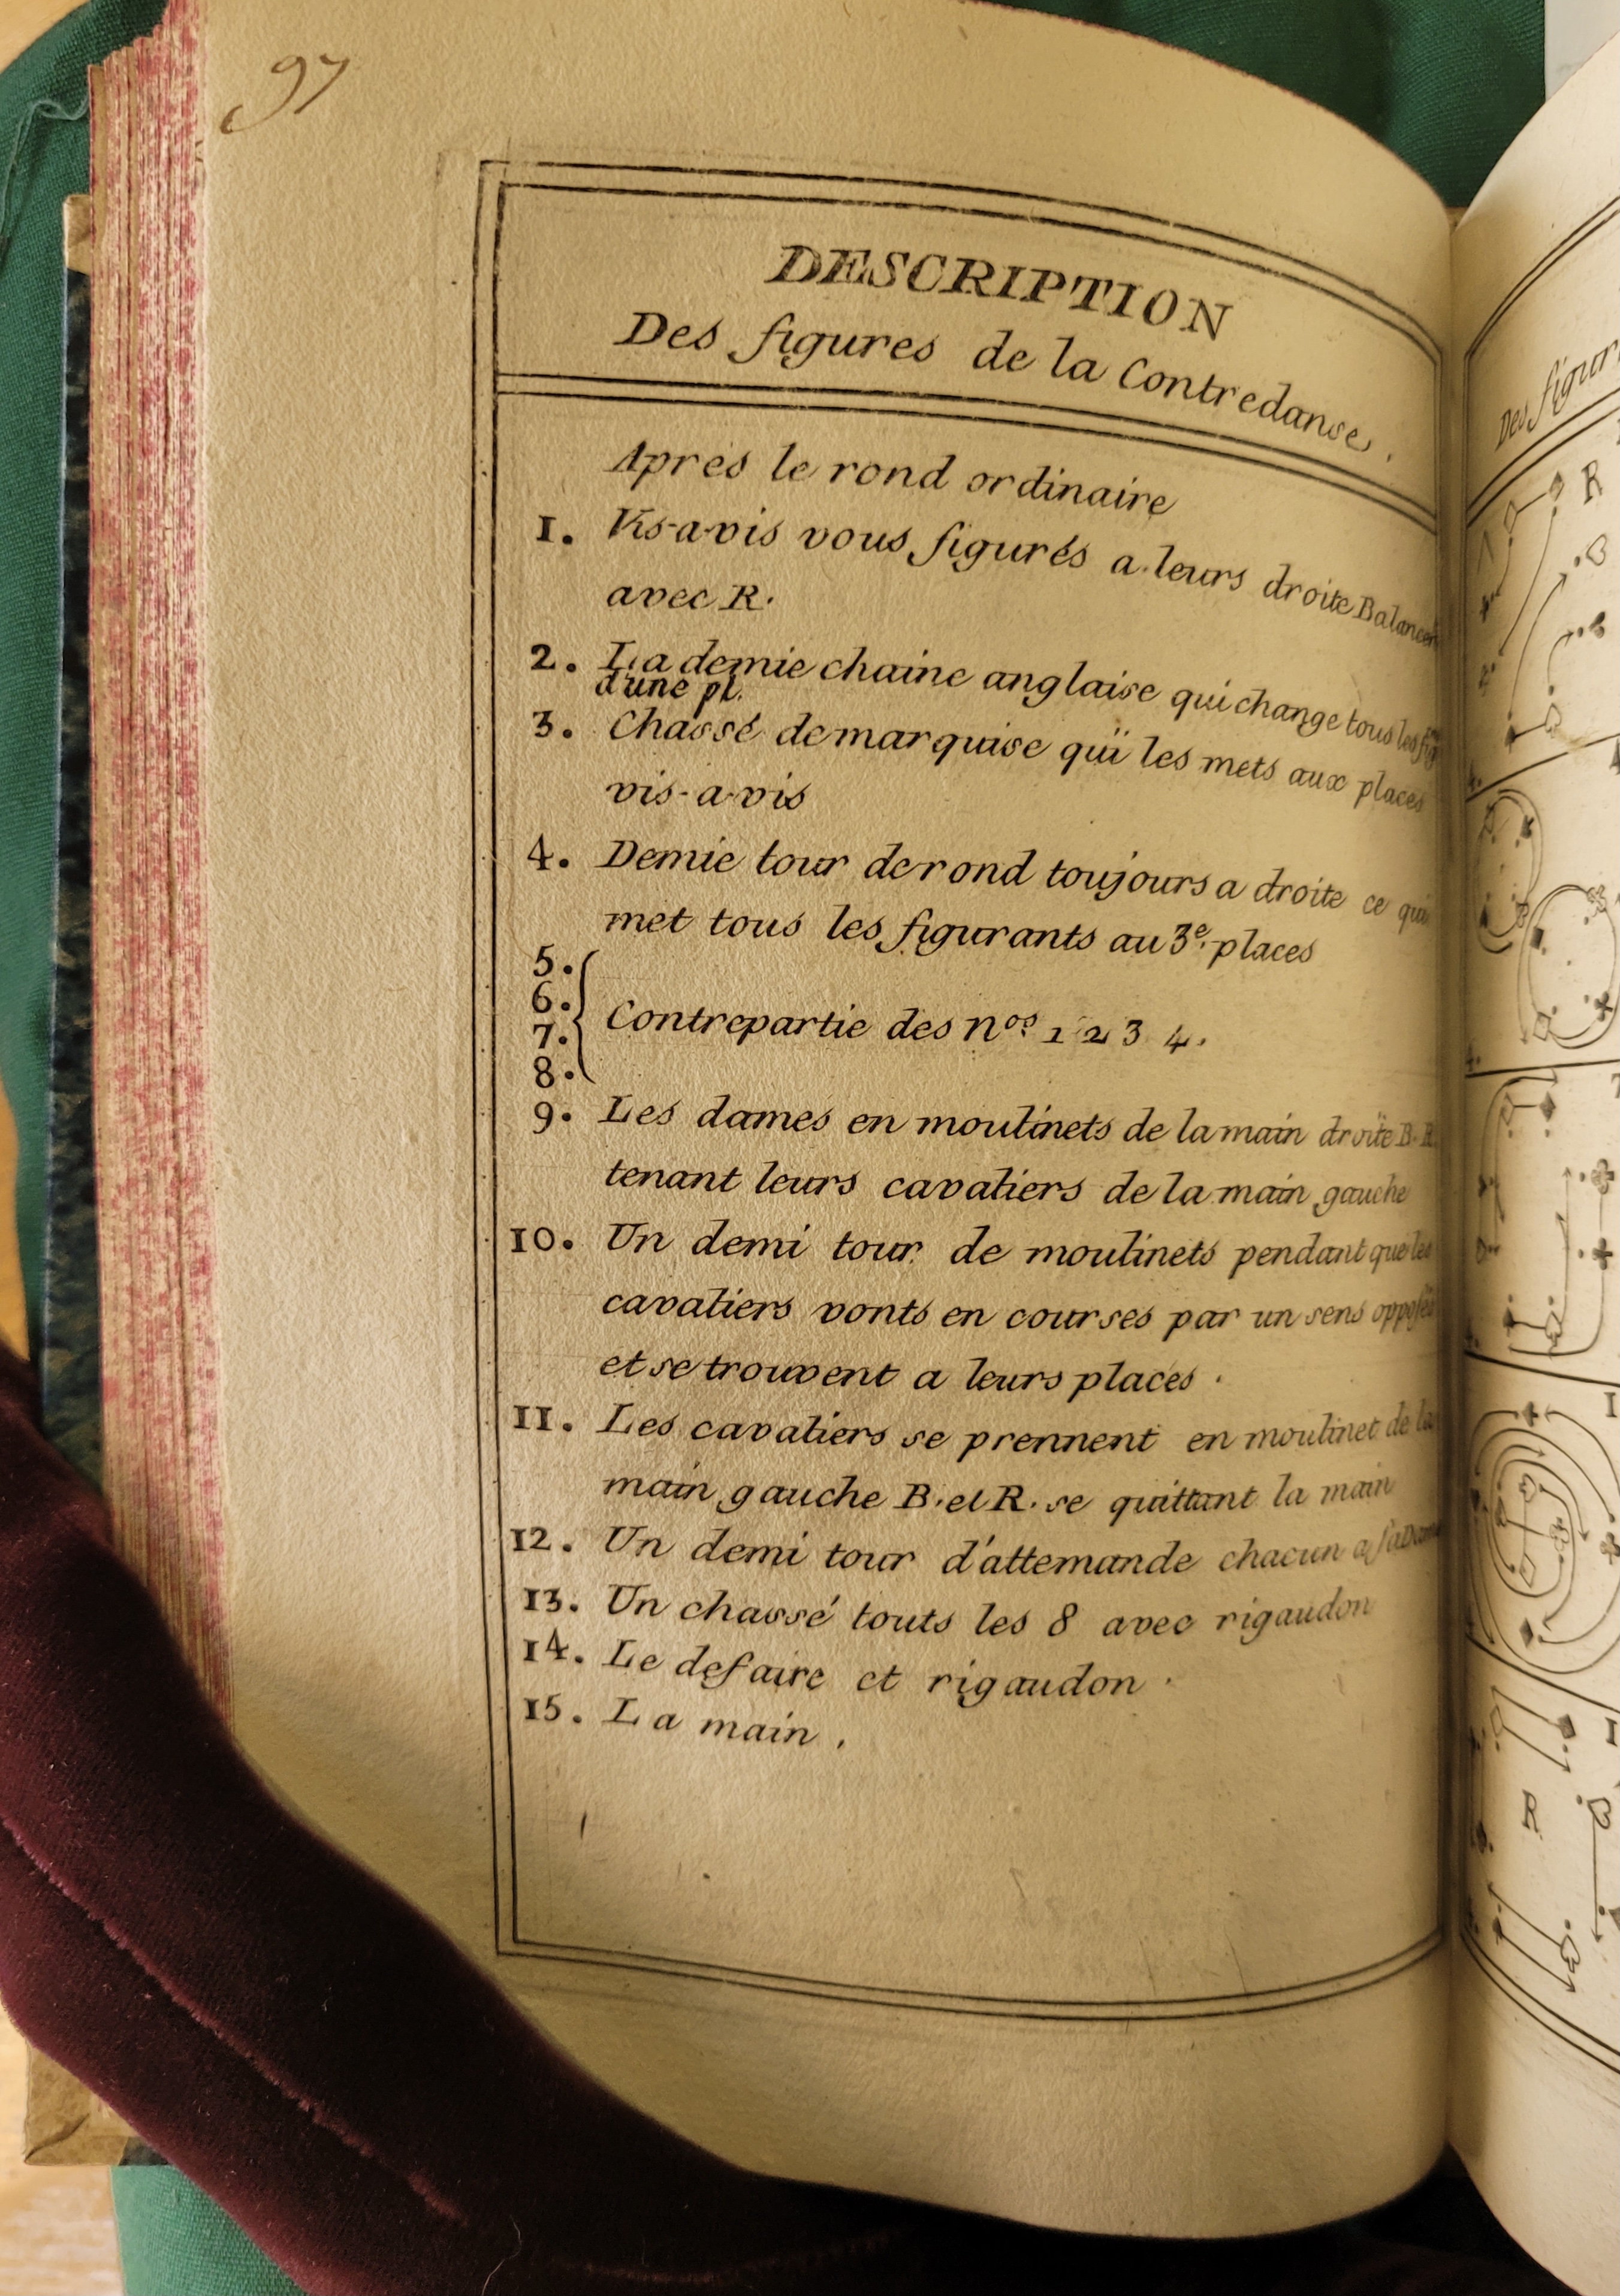 97
DESCRIPTION
Des figures de la Contredanse.
Apres le rond ordinaire
1. Vis-a-vis vous figurés a leurs droite Balancer
avec R.
2. La demie chaine anglaise qui change tous les fig
dune pl.
3. Chassé de marquise quï les mets aux places
vis-a-vis
4. Demie tour de rond toujours a droite ce qui
met tous les figurants au 3e. places
5.
6.
7.
8.
Contrepartie des nos. 1 2 3 4.
9. Les dames en moulinets de la main droite B. R.
tenant leurs cavaliers de la main gauche
10. Un demi tour de moulinets pendant que les
cavaliers vonts en courses par un sens opposés
et se trouvent a leurs places.
11. Les cavaliers se prennent en moulinet de la
main gauche B. et R. se quittant la main
12. Un demi tour d'attemande chacun a sa
13. Un chassé touts les 8 avec rigaudon
14. Le defaire et rigaudon.
15. La main.
Des figur
R
R